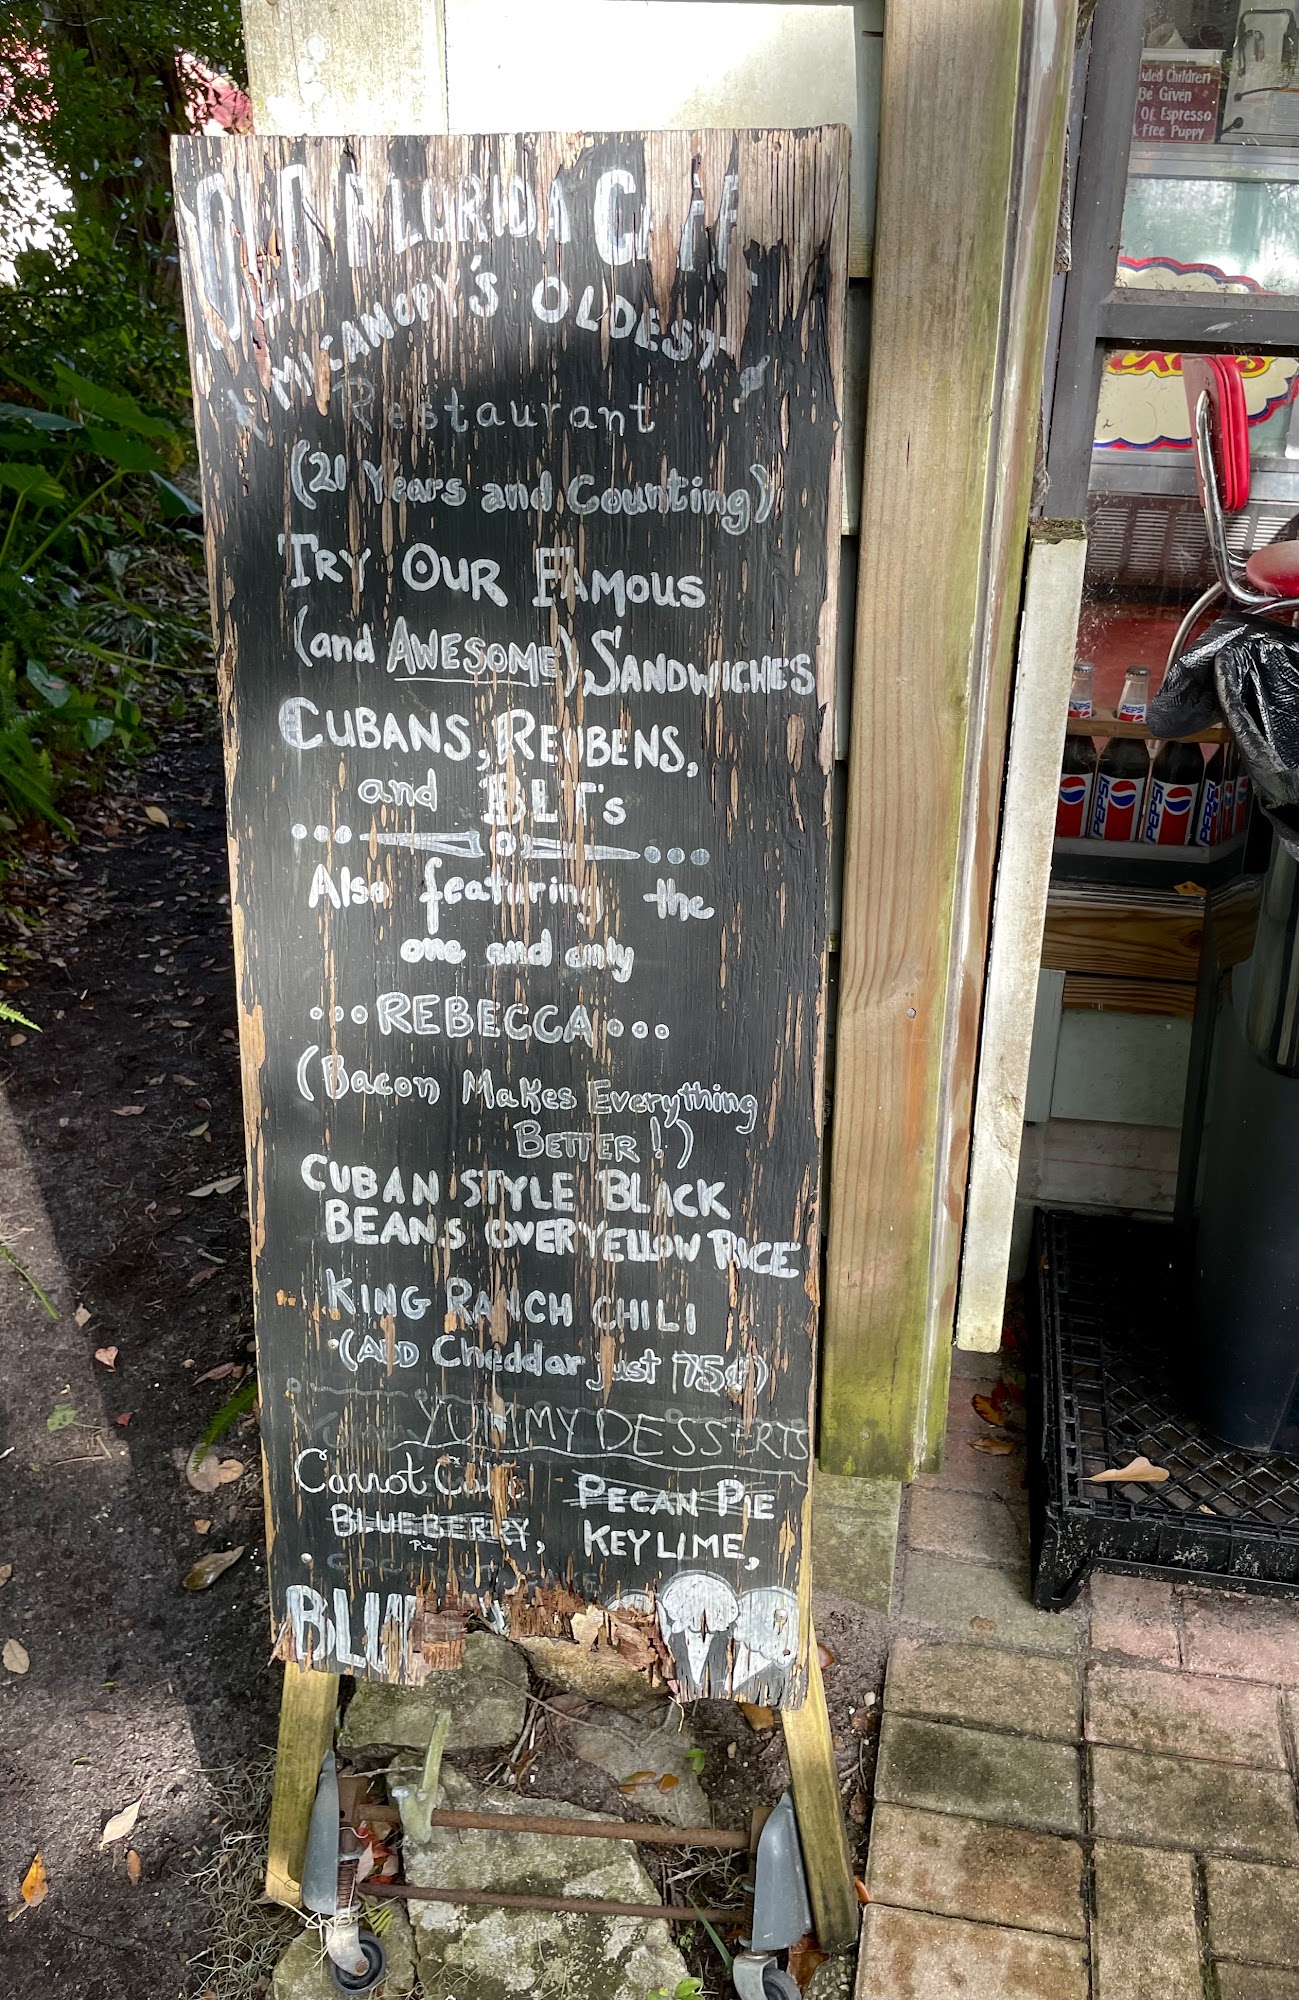 OLD FLORIDA CAFE
MICANOPY'S OLDEST
Restaurant
(21 Years and Counting)
TRY OUR FAMOUS
(and AWESOME) SANDWICHE'S
CUBANS, REUBENS,
and BLT's
Also featuring the
one and only
REBECCA
(Bacon Makes Everything
BETTER!)
CUBAN STYLE BLACK
BEANS OVER YELLOW RICE
KING RANCH CHILI
(ADD Cheddar just 75¢)
YUMMY DESSERTS
Carrot Cake PECAN PIE
BLUEBERRY, KEY LIME,
Pie
COCONUT CAKE
Children
Be Given
Of Espresso
Free Puppy
PEPSI
PEPSI
PEPSI
PEPSI